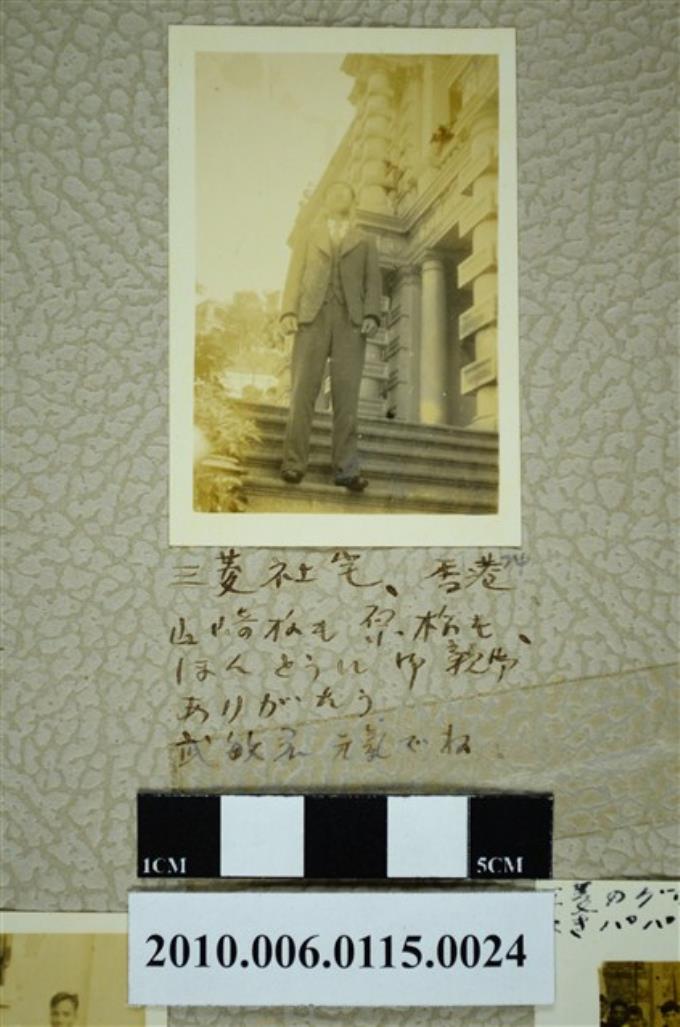 三菱社宅、香港
山崎様も 奥様も、
ほんとうに 御親切
ありがたう
武敏君 元気でね.
1CM
5CM
2010.006.0115.0024